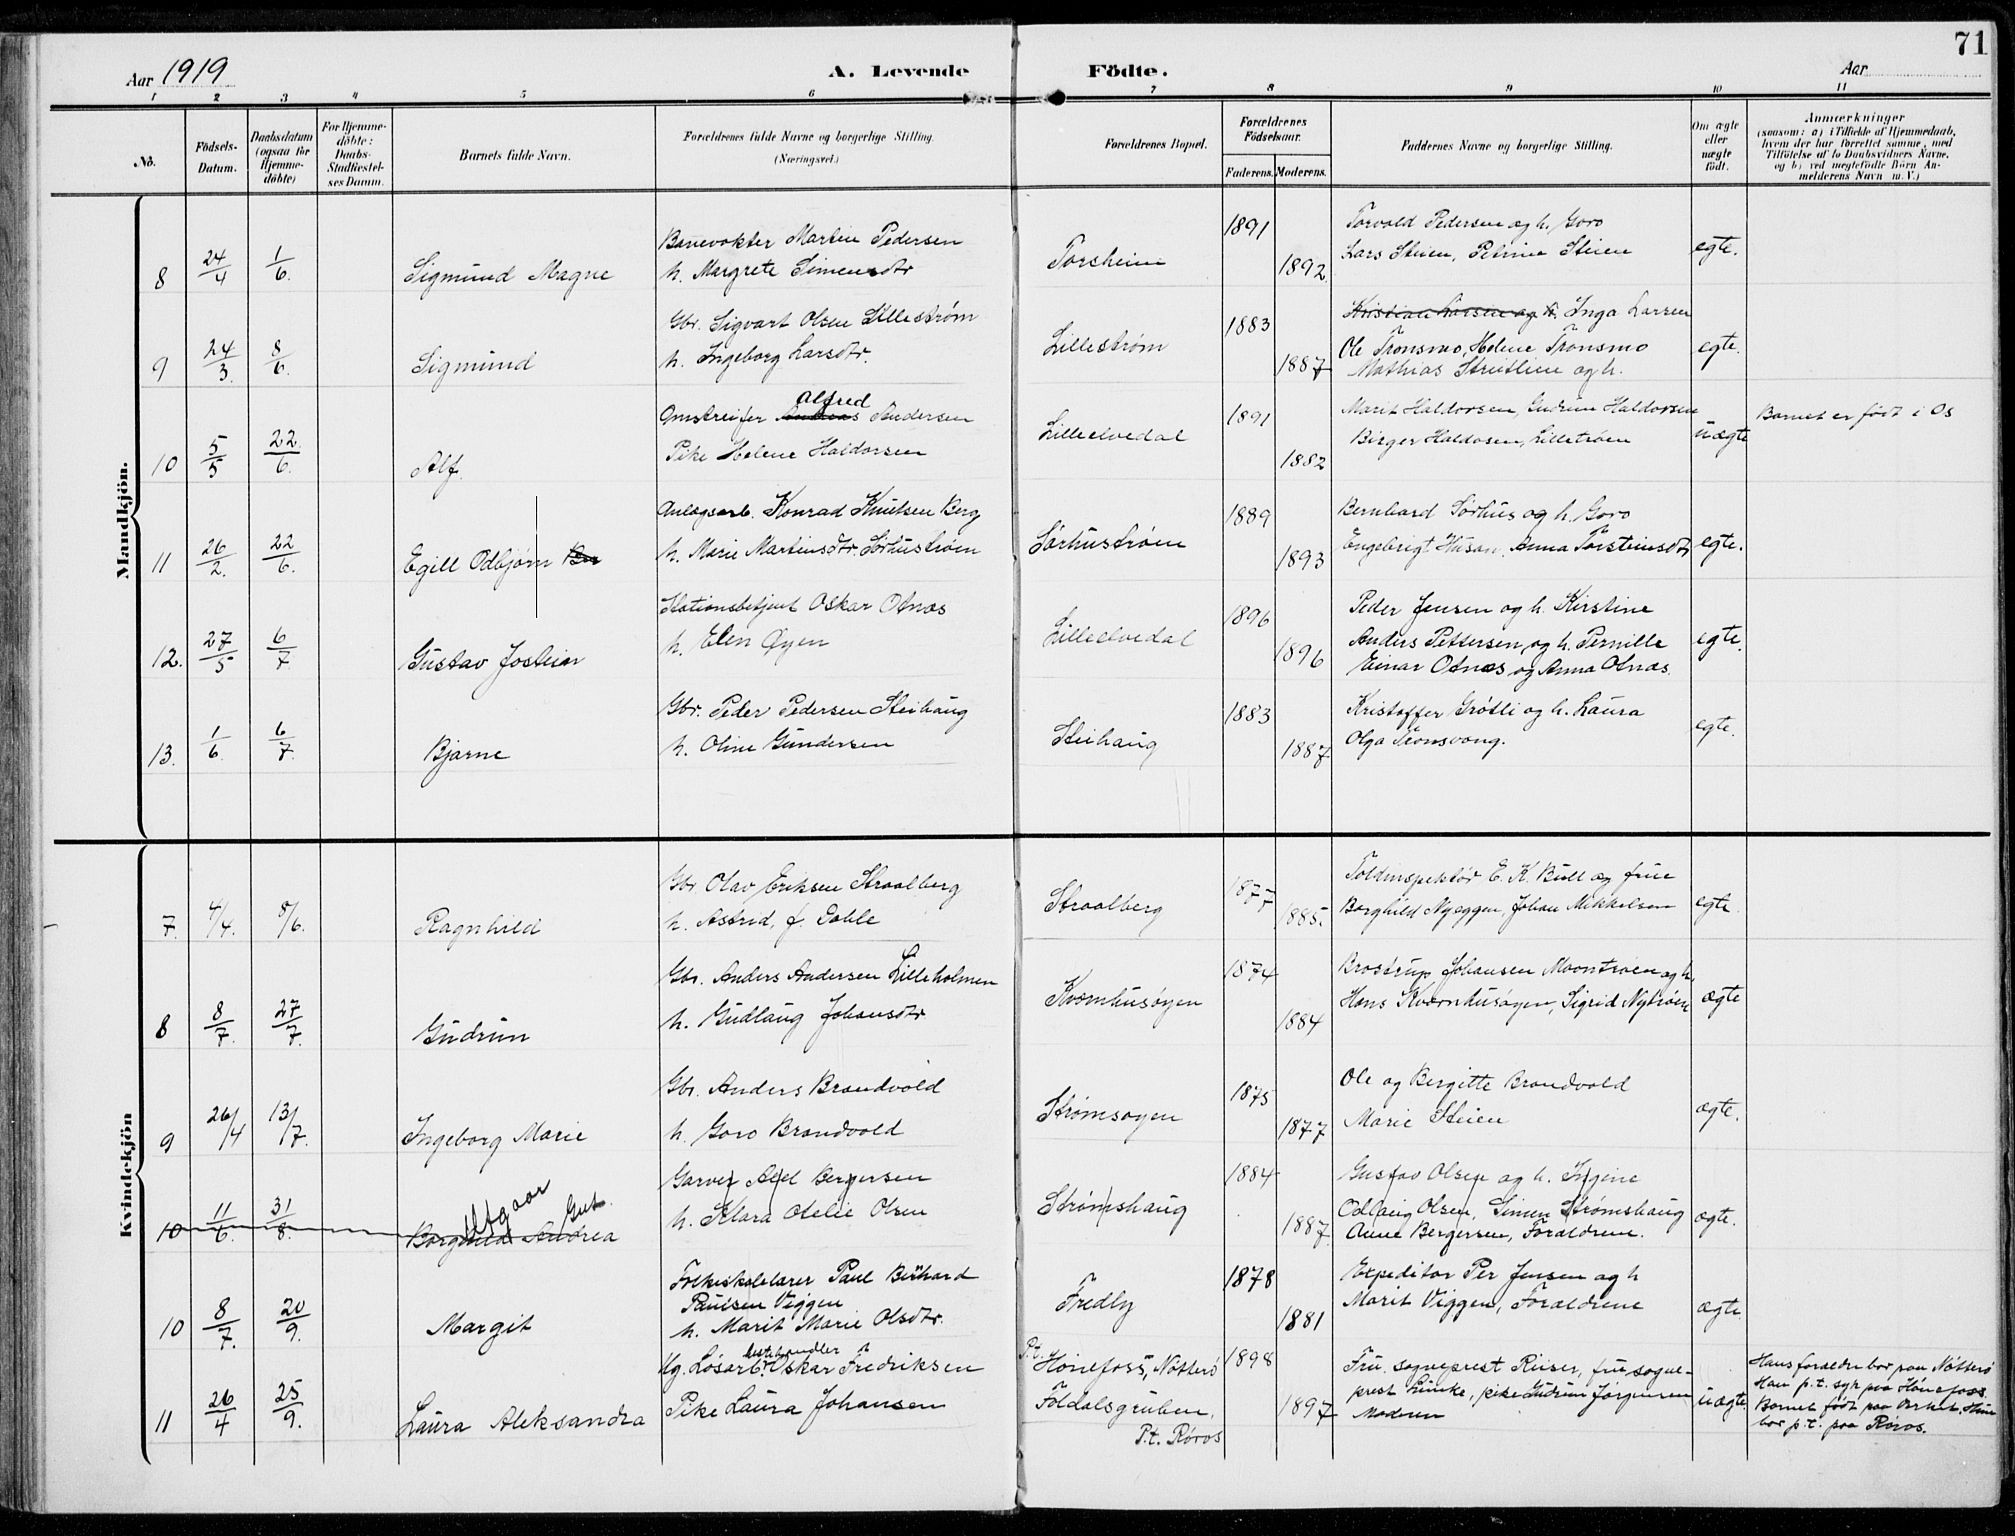 71
Aar 1919 A. Levende Födte. Aar
1 2 3 4 5 6 7 8 9 10 11
No. Födsels-Datum. Daabsdatum (ogsaa for Hjemme-döbte) For Hjemme-döbte: Daabs-Stadfæstel-ses Datum. Barnets fulde Navn. Forældrenes fulde Navne og borgerlige Stilling. (Næringsvei.) Forældrenes Bopæl. Forældrenes Födselsaar. Faderens. Moderens. Faddernes Navne og borgerlige Stilling. Om ægte eller uægte födt. Anmærkninger (saasom: a) i Tilfælde af Hjemmedaab, hvem der har forrettet samme, med Tilföielse af to Daabsvidners Navne, og b) ved uægtefödte Börn An-melderens Navn m. V.)
Mandkjön.
Banevokter Martin Pedersen 1891 Torvald Pedersen og h. Goro
8 24/4 1/6. Sigmund Magne h. Margrete Simensdtr Torsheim 1892 Lars Steien, Petrine Steien egte.
Gbr. Sigvart Olsen Lillestrøm 1883 Kristian Larsen og h. Inga Larsen
9 24/3. 8/6. Sigmund h. Ingeborg Larsdtr. Lillestrøm 1887 Ole Tronsmo, Helene Tronsmo egte.
Mathias Streitlien og h.
Alfred
Omstreifer Andreas Andersen 1891 Marit Haldorsen, Gudrun Haldorsen Barnet er født i Os
10 5/5 22/6. Alf. Pike Helene Haldorsen Lilleelvedal 1882 Birger Haldosen, Lilletrøen uægte
Anlægsarb. Konrad Knutsen Berg 1889 Bernhard Sørhus og h. Goro
11 26/2. 22/6. Egill Odbjørn h. Marie Martinsdtr. Sørhustrøen Sørhustrøen 1893 Engebrigt Husan, Anna Torsteinsdtr egte.
Stationsbetjent Oskar Otnes 1896 Peder Jensen og h. Kirstine
12. 27/5 6/7 Gustav Jostein h. Elen Øyen Lilleelvedal 1896 Anders Pettersen, og h. Pernille egte.
Einar Otnes og Anna Otnes.
Gbr. Peder Pedersen Steihaug 1883 Kristoffer Grøtli og h. Laura
13. 1/6. 6/7. Bjarne h. Oline Gundersen Steihaug 1887 Olga Tronsvang. egte.
Kvindekjön
Gbr Olav Eriksen Straalberg 1877 Toldinspektør E. K. Bull og frue
7. 4/4. 8/6. Ragnhild h. Astrid, f. Dahle Straalberg 1885. Borghild Nyeggen, Johan Mikkelsen egte.
Gbr. Anders Andersen Lilleholmen 1874 Brostrup Johansen Moantrøen og h.
8 8/7. 27/7. Gudrun h. Gudlaug Johansdtr Kvernhusøyen 1884 Hans Kvernhusøyen, Sigrid Nytrøen ægte
Gbr. Anders Brandvold 1875 Ole og Bergitte Brandvold
9 26/4 13/7. Ingeborg Marie h. Goro Brandvold Strømsøyen 1877 Marie Steien ægte.
Utgaar Gut.
Garver Axel Bergersen 1884 Gustav Olsen og h. Ingine
10 11/6. 31/8. Borghild Andrea h. Klara Otelie Olsen Strømshaug 1887. Odlaug Olsen, Simen Strømshaug ægte.
Anne Bergersen, Forældrene.
Folkeskolelærer Paul Bernhard 1878 Expeditør Per Jensen og h
Paulsen Viggen
10 8/7. 20/9. Margit h. Marit Marie Olsdtr. Fredly 1881 Marit Viggen, Forældrene ægte.
Ug. Løsarb. Oskar Fredriksen P.t. Hønefoss, Nøtterø 1898 Fru sogneprest Riiser, fru sogne- Hans foreldre bor paa Nøtterø
Han p.t. syk paa Hønefoss.
11 26/4 25/9. Laura Aleksandra Pike Laura Johansen Foldalsgruben. 1897 prest Lunke, pike Gudrun Jørgensen uægte. Barnet født paa Verket. Hun
P.t. Røros Moderen bor p.t. paa Røros.